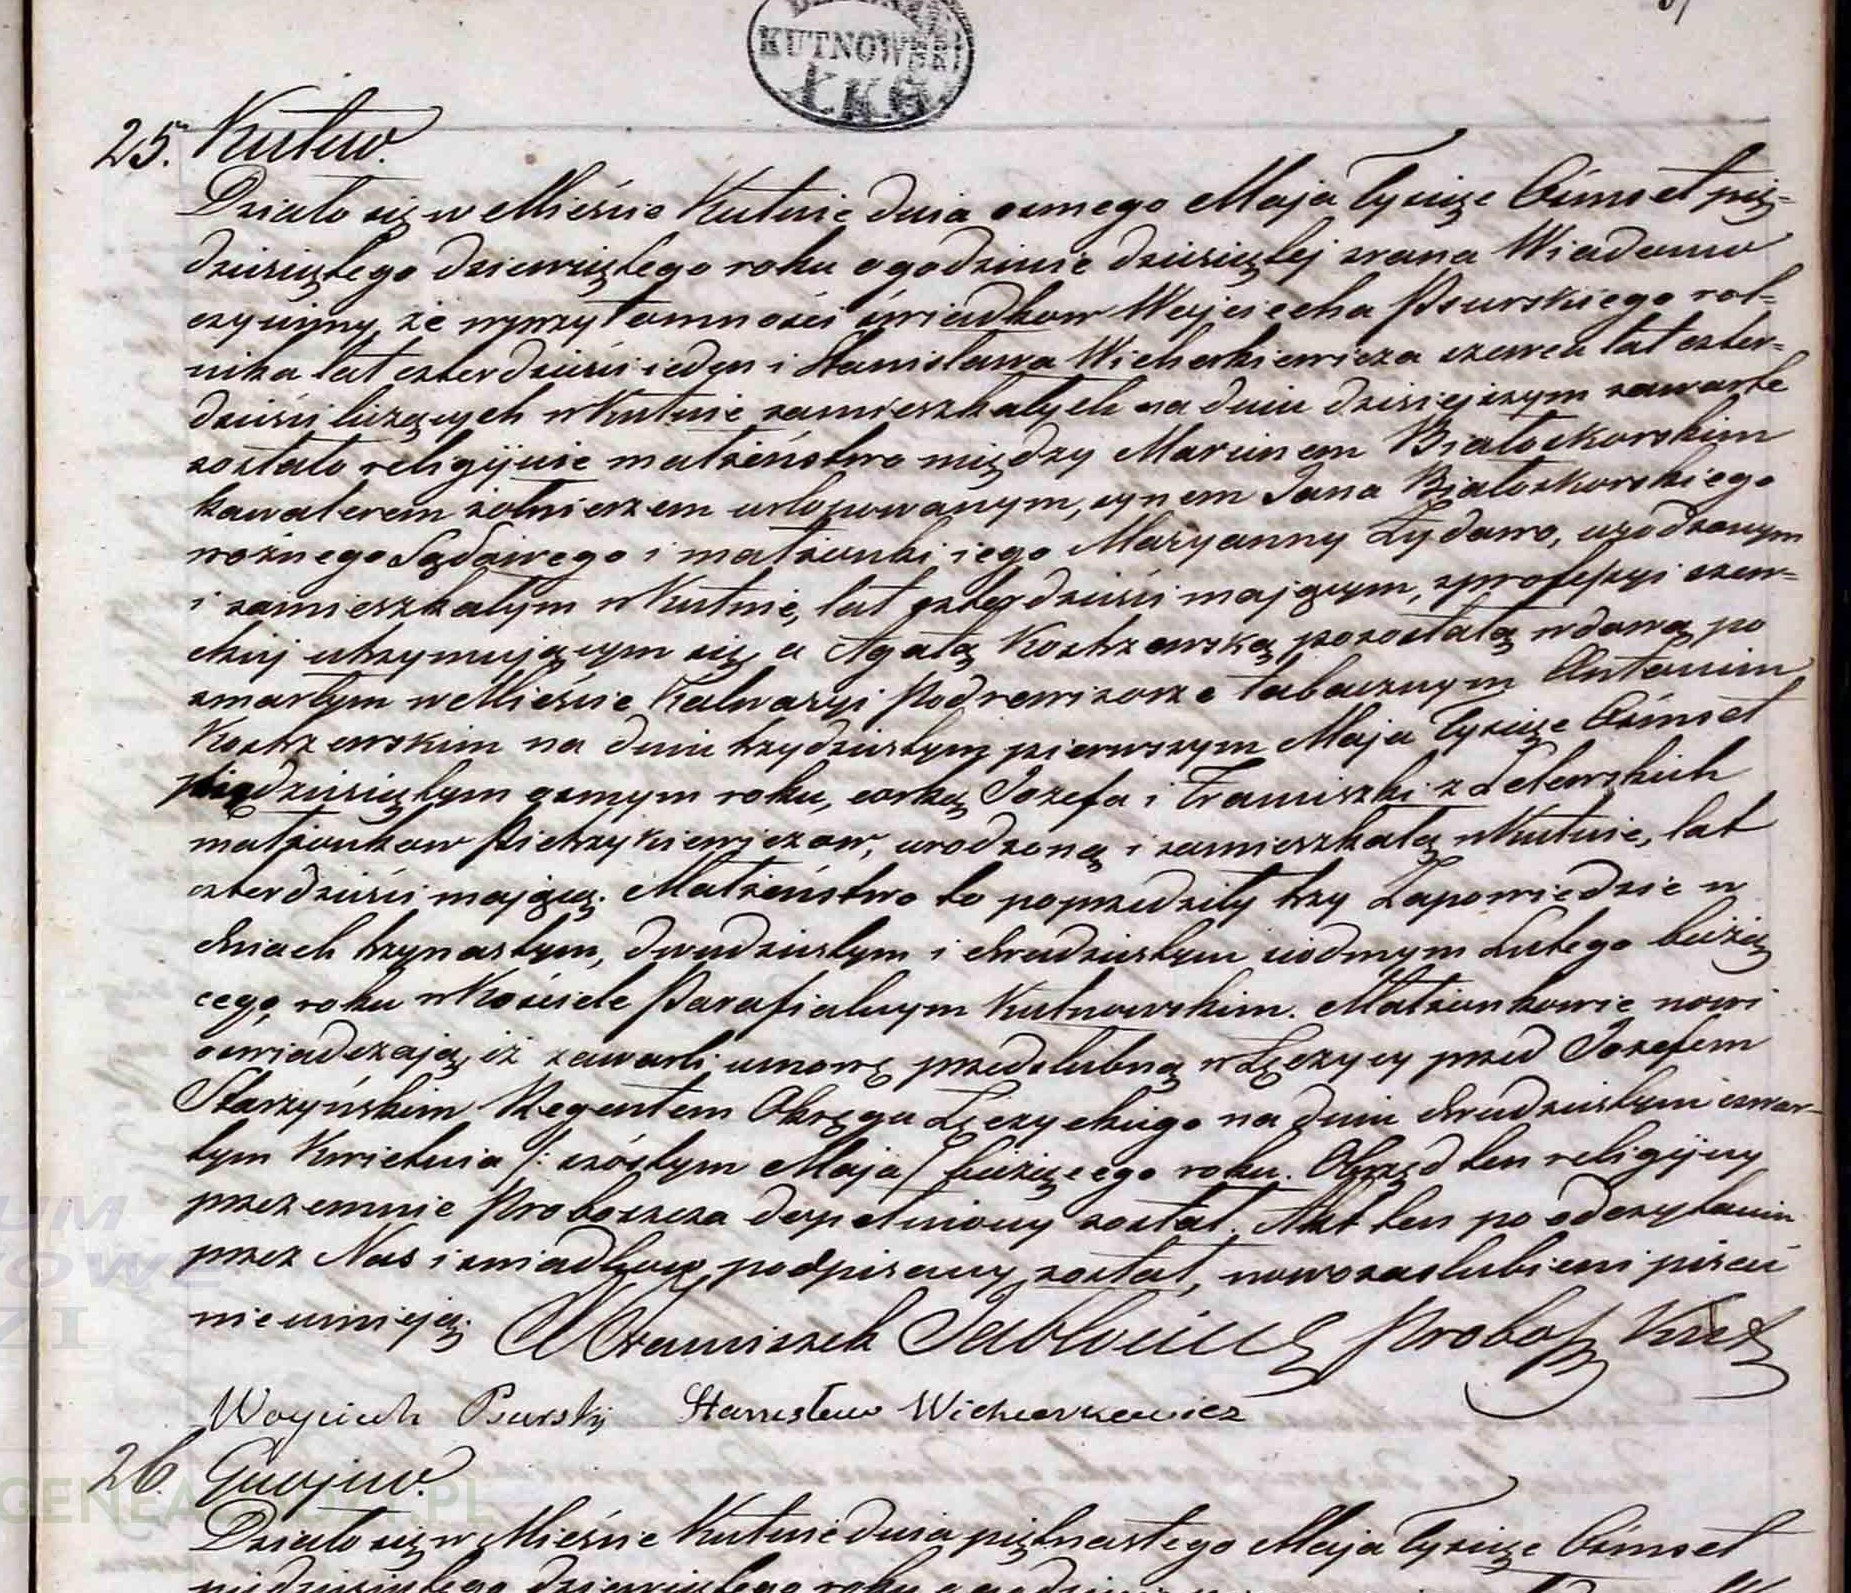 KUTNOWSKI
ŁKG
25. Kutno.
Działo się w Mieście Kutnie dnia osmego Maja Tysiąc Ośmset pię=
dziesiątego dziewiątego roku o godzinie dziesiątej zrana Wiadomo
czynimy, że w przytomności świadkow Wojciecha Psurskiego rol=
nika lat czterdzieści ieden i Stanisława Wicherkiewicza szewca lat czter=
dzieści liczących w Kutnie zamieszkałych na dniu dzisiejszym zawarte
zostało religijnie małżeństwo między Marcinem Białoskorskim
kawalerem żołnierzem urlopowanym, synem Jana Białoskorskiego
woźnego Sądowego i małżonki iego Maryanny Żydowo, urodzonym
i zamieszkałym w Kutnie, lat czterdzieści mającym, z professyi szew=
ckiej utrzymującym się, a Agatą Kostrzewską pozostałą wdową po
zmarłym w Mieście Kalwaryi Podrewizorze tabacznym Antonim
Kostrzewskim na dniu trzydziestym pierwszym Maja Tysiąc Ośmset
piędziesiątym osmym roku, corką Jozefa i Franciszki z Zelewskich
małżonkow Pietrzykiewiczow, urodzoną i zamieszkałą w Kutnie, lat
czterdzieści mającą. Małżeństwo to poprzedziły trzy Zapowiedzie w
dniach trzynastym, dwudziestym i dwudziestym siodmym Lutego bieżą
cego roku w Kościele Parafialnym Kutnowskim. Małżonkowie nowi
oswiadczają iż zawarli umowę przedslubną w Łęczycy przed Jozefem
Starzyńskim Regentem Okręgu Łęczyckiego na dniu dwudziestym czwar-
tym Kwietnia /: szóstym Maja / bieżącego roku. Obrząd ten religijny
przezemnie Proboszcza dopełniony został. Akt ten po odczytaniu
przez Nas i swiadkow podpisany został, nowozaslubieni pisać
nieumieją. Franciszek Jabłoński Probosz Kut
Woyciech Psurski Stanisław Wicherkiewicz
26. Gnojno.
Działo się w Mieście Kutnie dnia piętnastego Maja Tysiąc Ośmset
piędziesiątego dziewiątego roku o godzinie